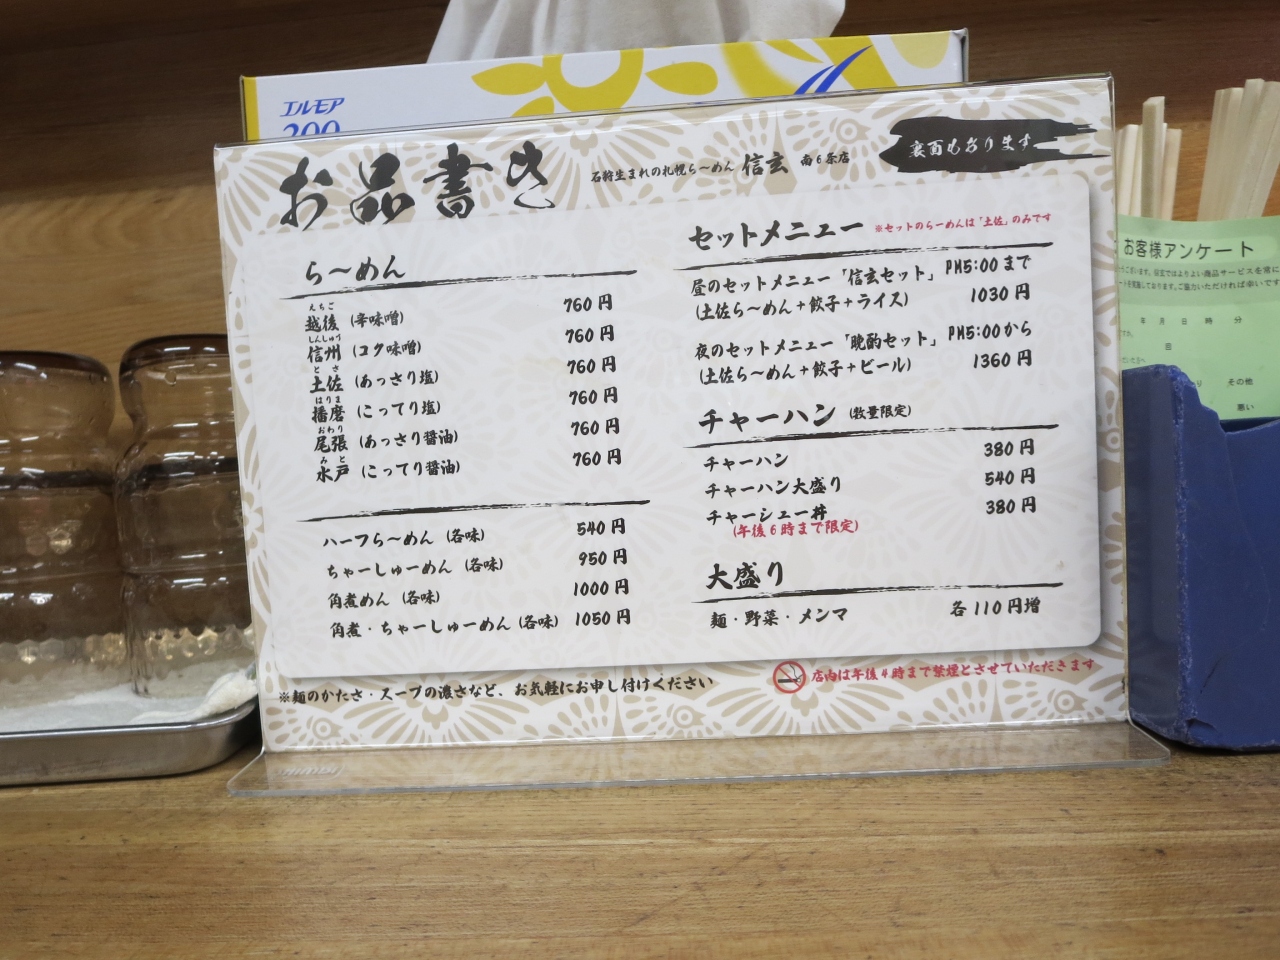 エルモア
200
お品書き
石狩生まれの札幌ら〜めん 信玄 南6条店
裏面もあります
ら〜めん
えちご
越後 (辛味噌) 760円
しんしゅう
信州 (コク味噌) 760円
とさ
土佐 (あっさり塩) 760円
はりま
播磨 (こってり塩) 760円
おわり
尾張 (あっさり醤油) 760円
みと
水戸 (こってり醤油) 760円
ハーフら〜めん (各味) 540円
ちゃーしゅーめん (各味) 950円
角煮めん (各味) 1000円
角煮・ちゃーしゅーめん (各味) 1050円
セットメニュー ※セットのらーめんは「土佐」のみです
昼のセットメニュー「信玄セット」 PM5:00まで
(土佐ら〜めん+餃子+ライス) 1030円
夜のセットメニュー「晩酌セット」 PM5:00から
(土佐ら〜めん+餃子+ビール) 1360円
チャーハン (数量限定)
チャーハン 380円
チャーハン大盛り 540円
チャーシュー丼 380円
(午後6時まで限定)
大盛り
麺・野菜・メンマ 各110円増
※麺のかたさ・スープの濃さなど、お気軽にお申し付けください
店内は午後4時まで禁煙とさせていただきます
お客様アンケート
うございます。信玄ではよりよい商品サービスを常に
ートを実施しております。ご協力いただければ幸いです
年 月 日 時 分
回
その他
悪い